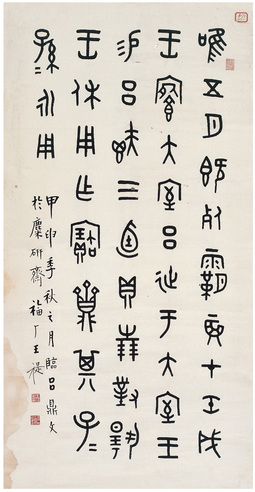 唯五月既死霸辰才壬戌
王大室吕延于大室王
易吕三卣貝卅對揚
王休用乍寶其子=
孫=永用
甲申季秋之月臨吕鼎文
於麋研齋福厂王禔